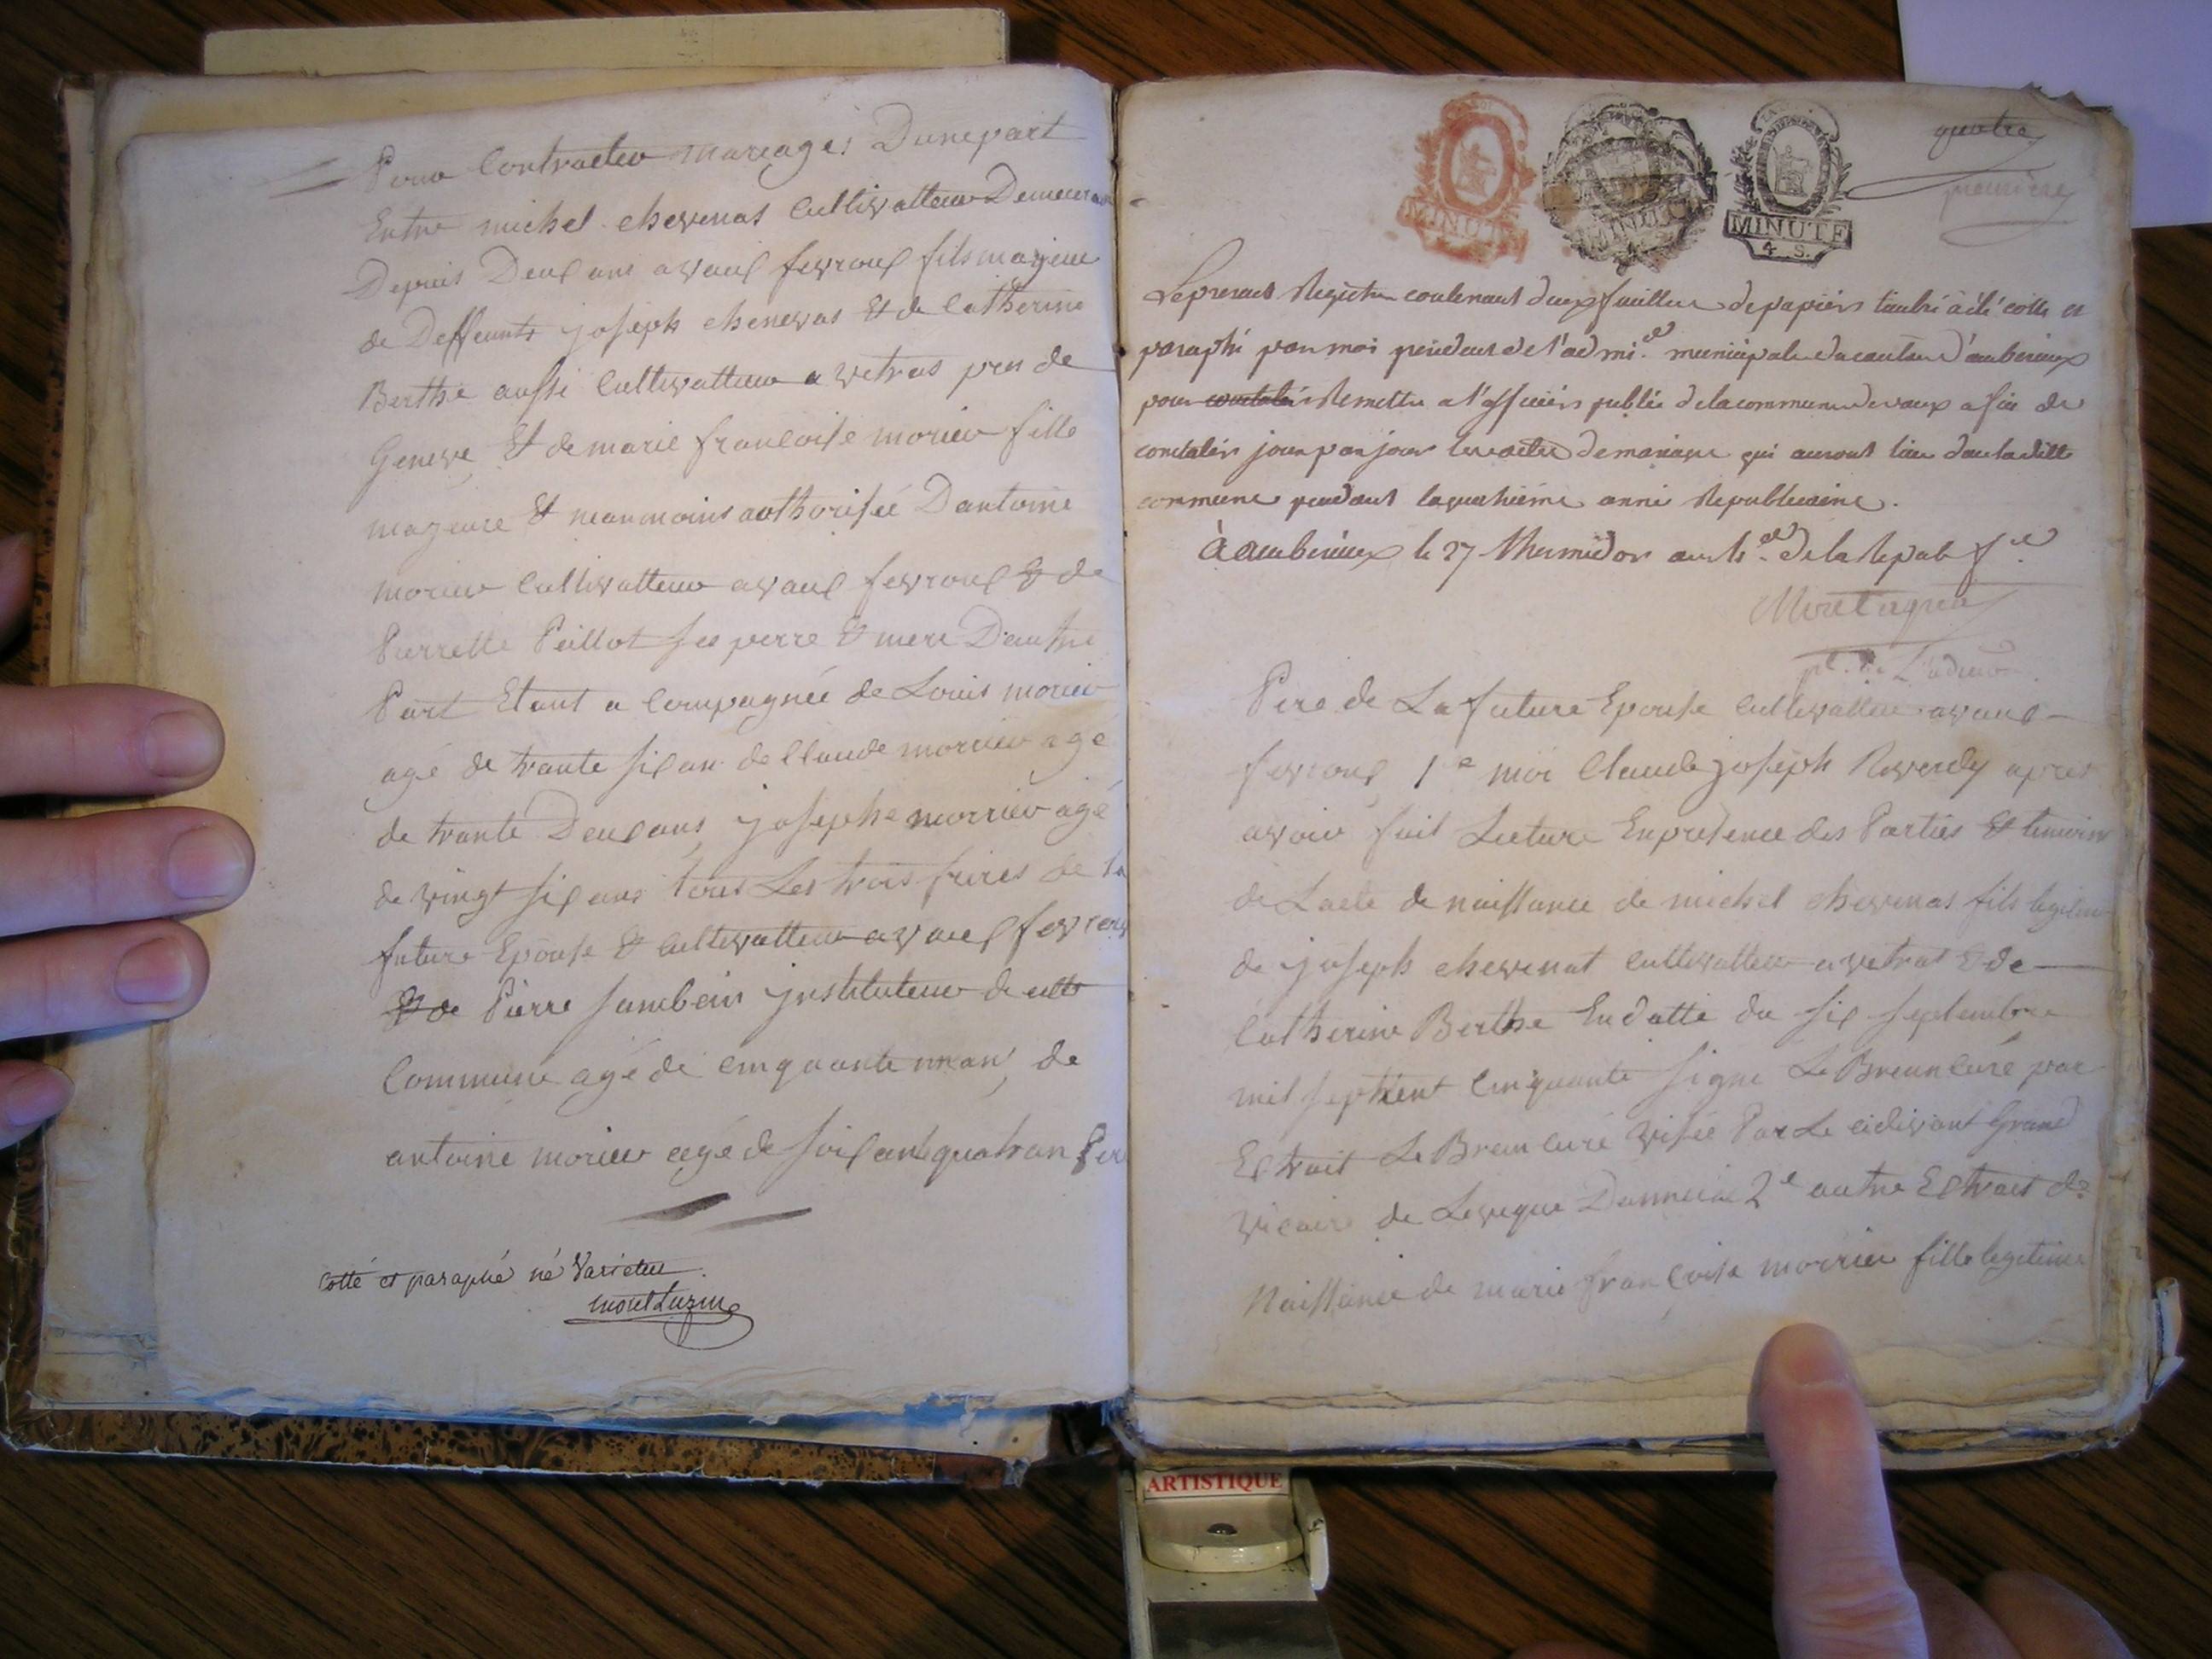 Pour Contracter mariages Dunepart
Entre michel chevenas Cultivatteur Demeuran
Depuis Deux ans avaux fevroux fils majeur
de Deffeunts joseph chenevas & de Catherine
Berthe aussi Cultivatteur a vetras pres de
Geneve & de marie francoise morier fille
majeure & neanmoins authorisée Dantoine
morier Cultivatteur avaux fevroux & de
Pierrette Peillot ses perre & mere Dautre
Part Etant a Compagnée de Louis morier
agé de trante six an de Claude morier agé
de trante Deux ans josephe morrier agé
de vingt six ans tous Les trois freres de la
future Epouse & Cultivatteur avaux fevroux
& de Pierre jambein jnstituteur de cette
Commune agé de Cinquante nnans de
antoine morier agé de soixante quatran
Cotté et paraphé né Varietur
montluzin
quatre
premiere
MINUTE
MINUTE
MINUTE
4 S.
Le present Registre contenant deux feuilles de papiers timbré à été cotté et
paraphé par moi president de l'admi.on municipale du canton d'amberieux
pour constater Remettre a l'officiers public de la commune de vaux a fin de
constater jour par jour les actes de mariage qui auront lieu dans la ditte
commune pendant la quatrieme anné Republicaine.
à amberieux le 27 thermidor an de la Repub f
Montagnat
Pere de La future Epouse Cultivatteur avaux
fevroux 1e moi Claude joseph Reverdy apres
avoir fait Lecture Enpresence des Parties & temoins
de Lacte de naissance de michel chevenas fils legitime
de joseph chevenat cultivatteur a vetrat & de
Catherine Berthe Endatte du six septembre
mil septcent Cinquante signé Le Brun curé par
Extrait Le Brun curé visée Par Le cidivant Grand
vicaire de Leveque Dannecie 2e autre Extrait de
Naissance de marie francoise morrier fille legitime
ARTISTIQUE